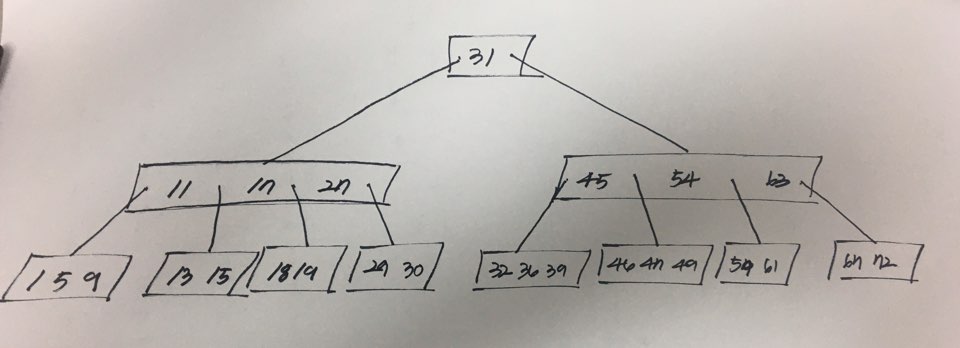 31
11 17 27
45 54 63
1 5 9
13 15
18 19
29 30
32 36 39
46 47 49
59 61
67 72